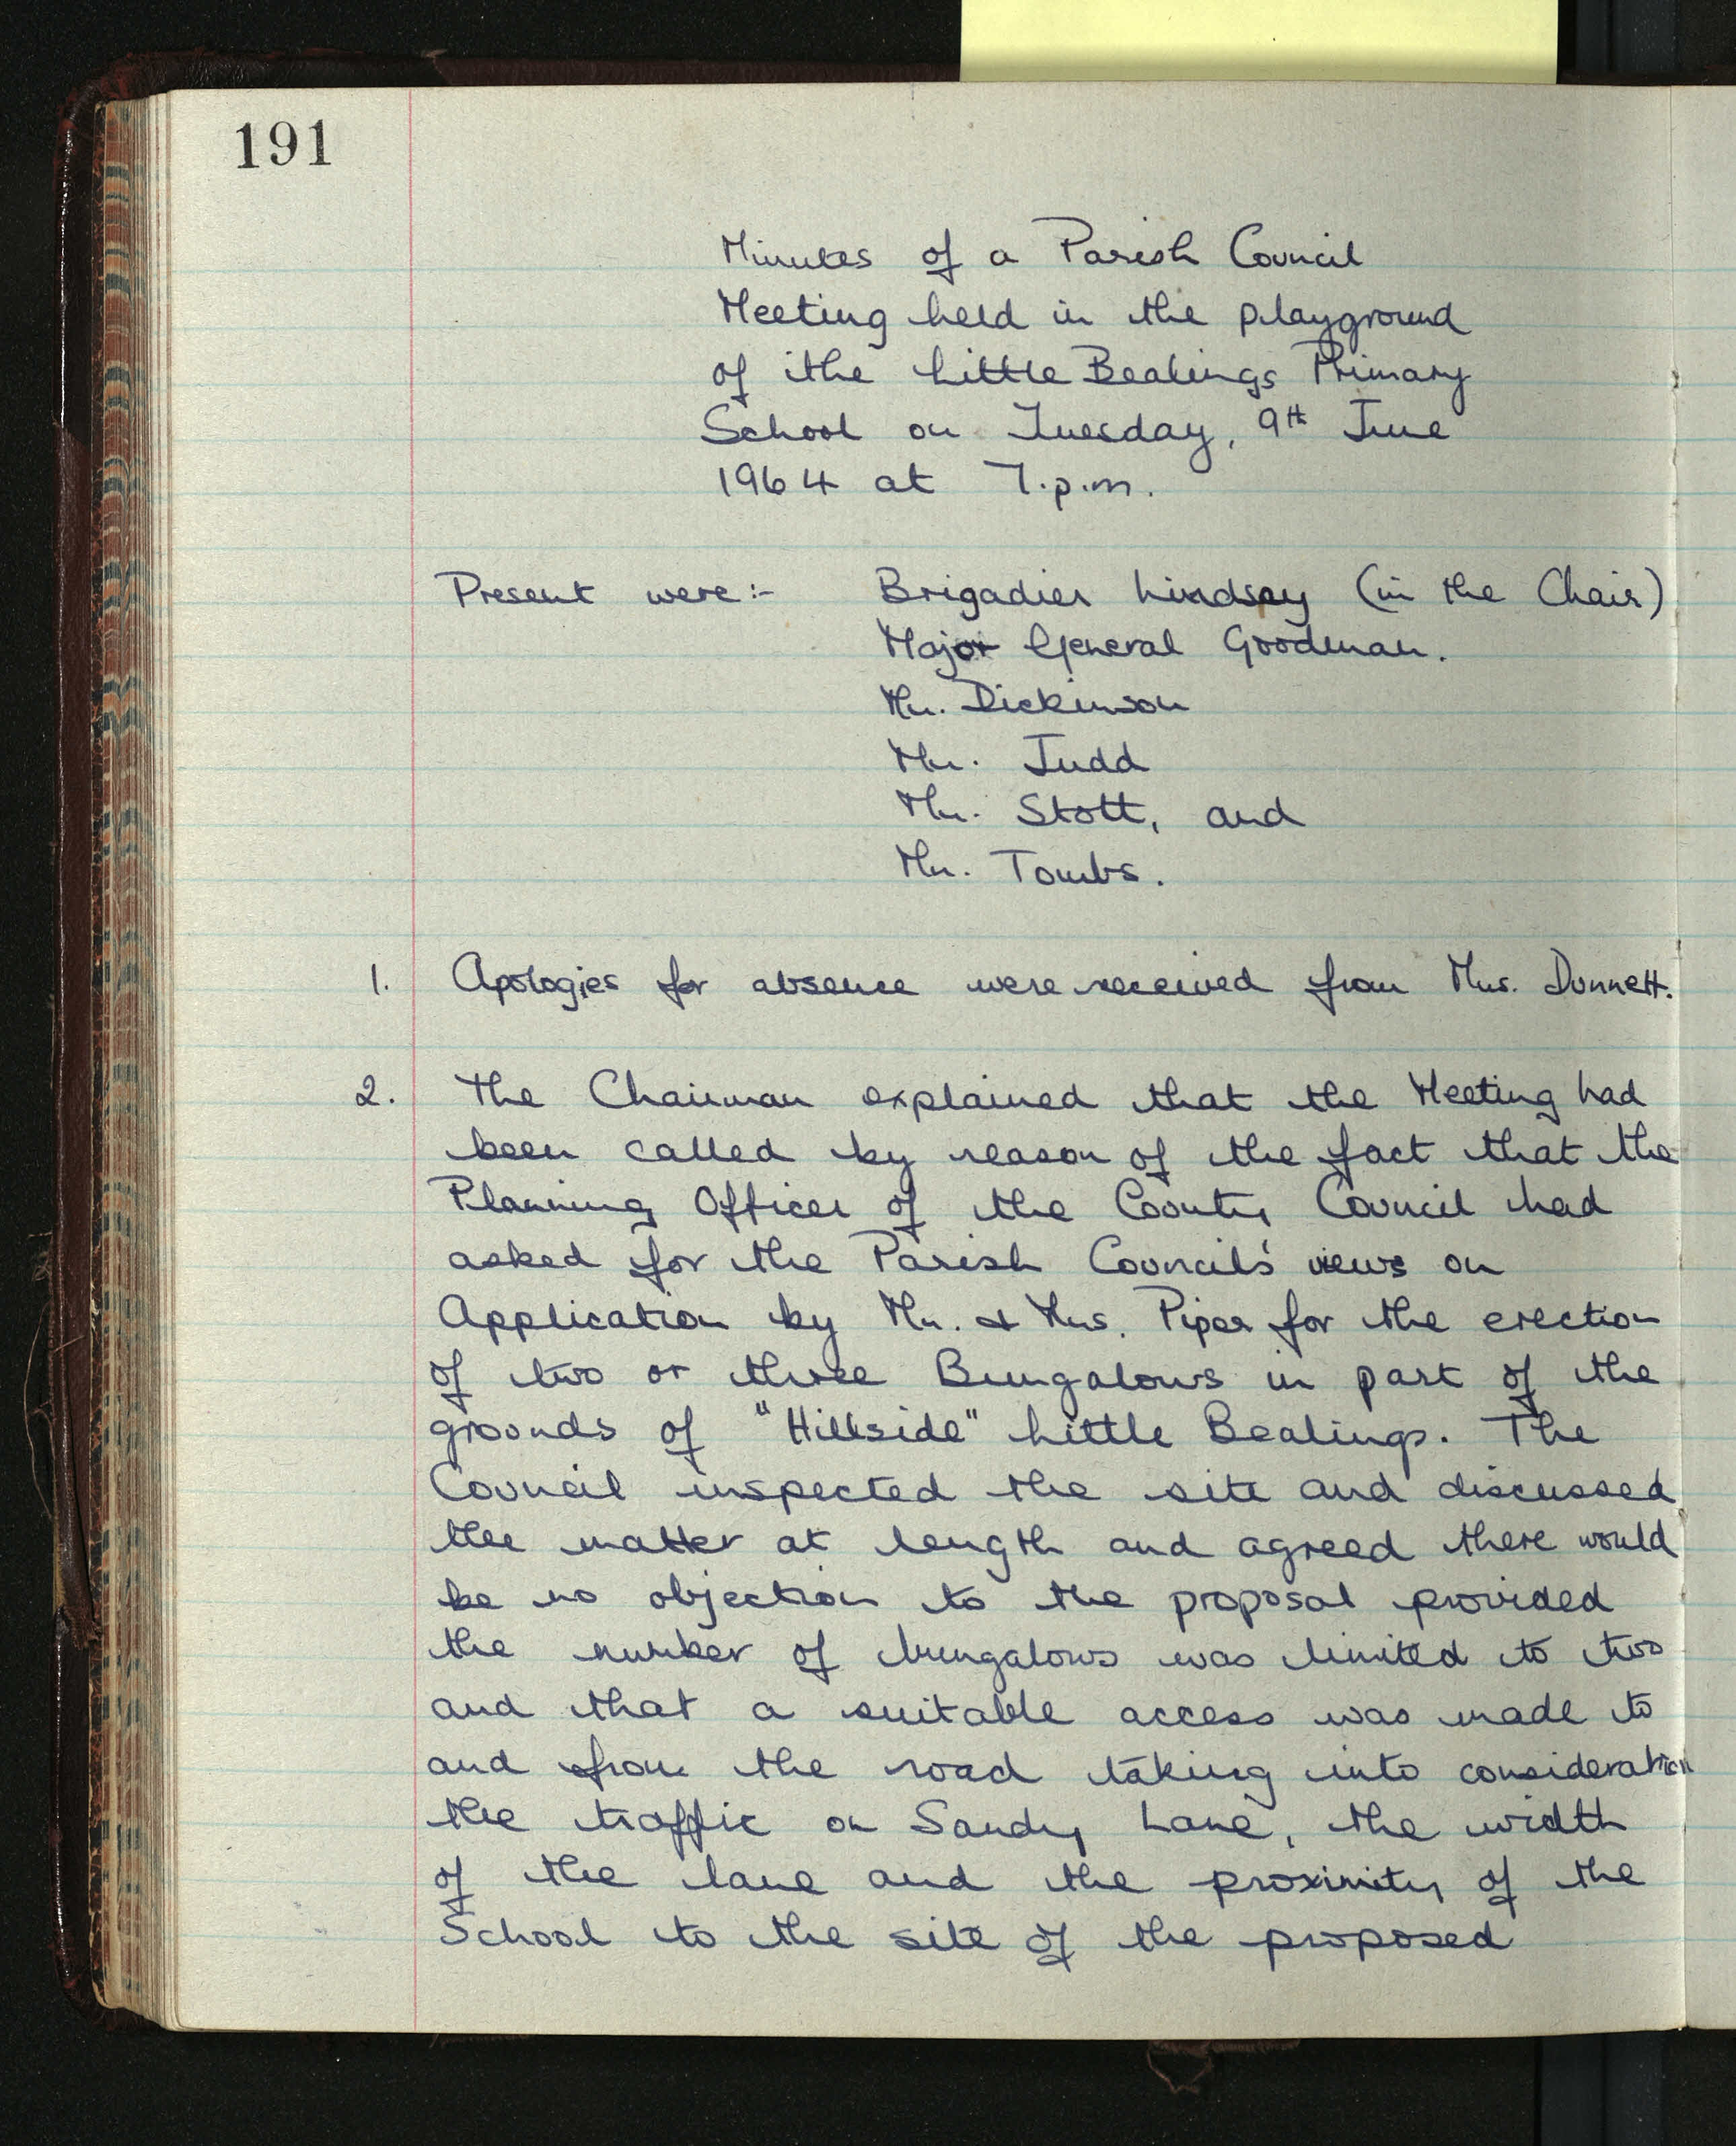 191
Minutes of a Parish Council
Meeting held in the playground
of the Little Bealings Primary
School on Tuesday, 9th June
1964 at 7.p.m.
Present were:- Brigadier Lindsay (in the Chair)
Major General Goodman.
Mr. Dickinson
Mr. Judd
Mr. Stott, and
Mr. Tombs.
1. Apologies for absence were received from Mrs. Dunnett.
2. The Chairman explained that the Meeting had
been called by reason of the fact that the
Planning Officer of the County Council had
asked for the Parish Council's views on
Application by Mr. & Mrs. Piper for the erection
of two or three Bungalows in part of the
grounds of "Hillside" Little Bealings. The
Council inspected the site and discussed
the matter at length and agreed there would
be no objection to the proposal provided
the number of bungalows was limited to two
and that a suitable access was made to
and from the road taking into consideration
the traffic on Sandy Lane, the width
of the lane and the proximity of the
School to the site of the proposed